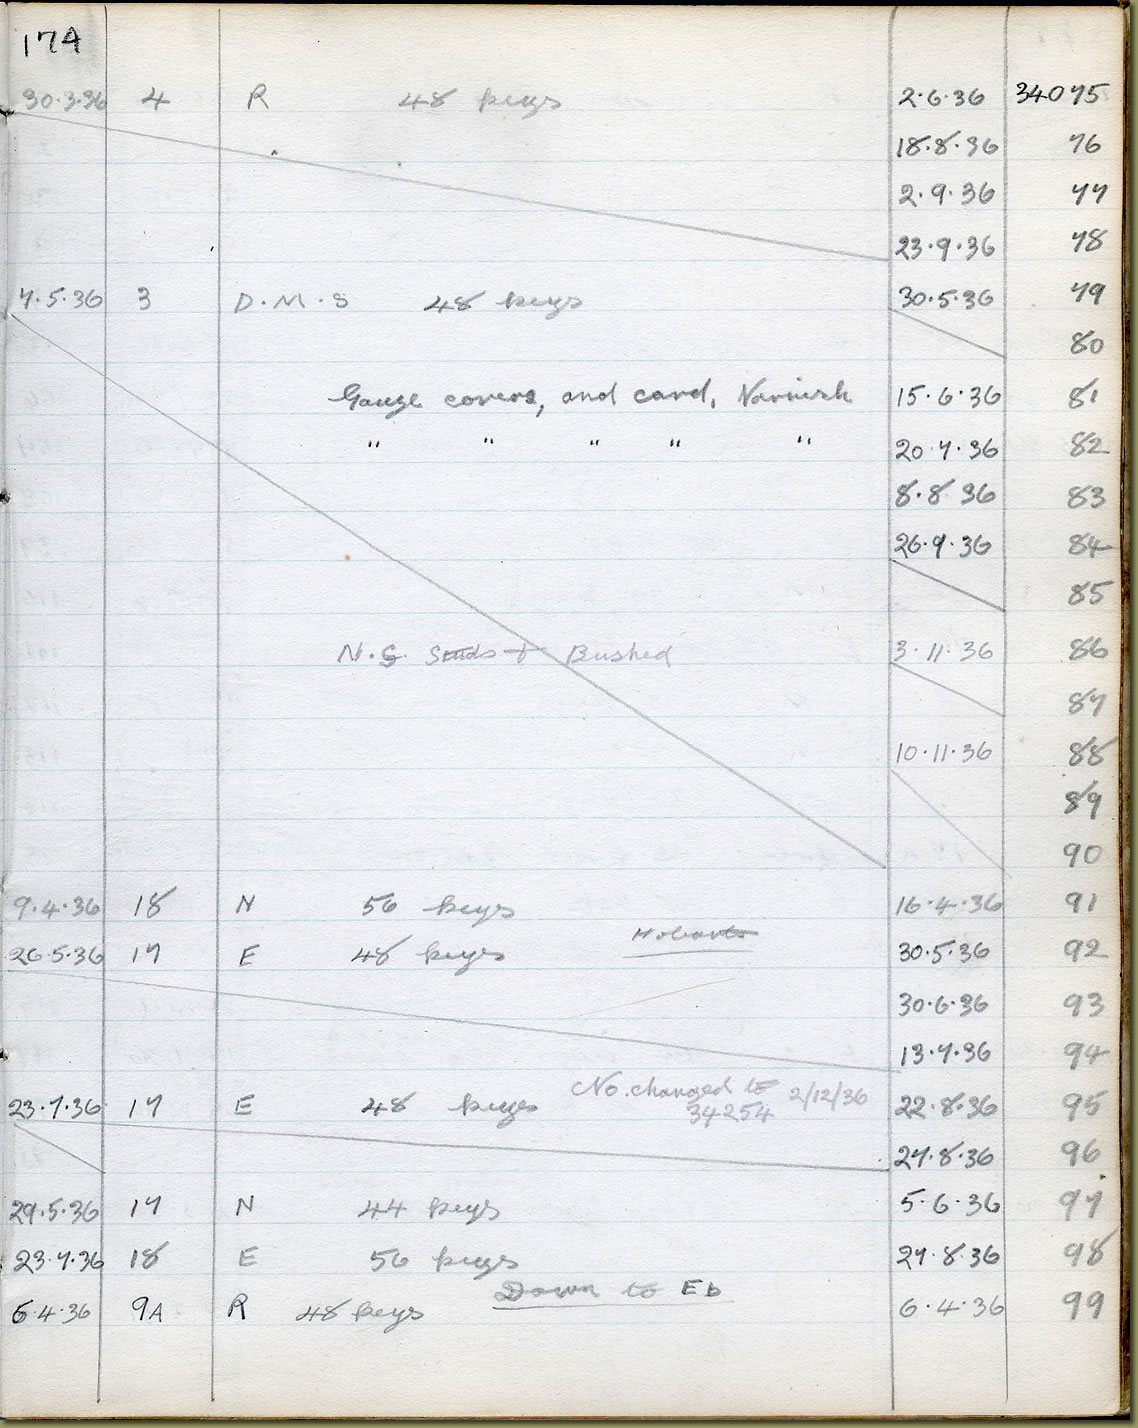 174
30.3.36 4 R 48 keys 2.6.36 34075
18.8.36 76
2.9.36 77
23.9.36 78
7.5.36 3 D.M.S 48 keys 30.5.36 79
80
Gauze covers, and card, Varnish 15.6.36 81
" " " " " 20.7.36 82
8.8.36 83
26.9.36 84
85
N.S. Studs + Bushed 3.11.36 86
87
10.11.36 88
89
90
9.4.36 18 N 56 keys 16.4.36 91
Hobarts
26.5.36 17 E 48 keys 30.5.36 92
30.6.36 93
13.7.36 94
No. changed to 2/12/36
23.7.36 17 E 48 keys 34254 22.8.36 95
27.8.36 96
29.5.36 17 N 44 keys 5.6.36 97
23.7.36 18 E 56 keys 27.8.36 98
Down to Eb
6.4.36 9A R 48 keys 6.4.36 99